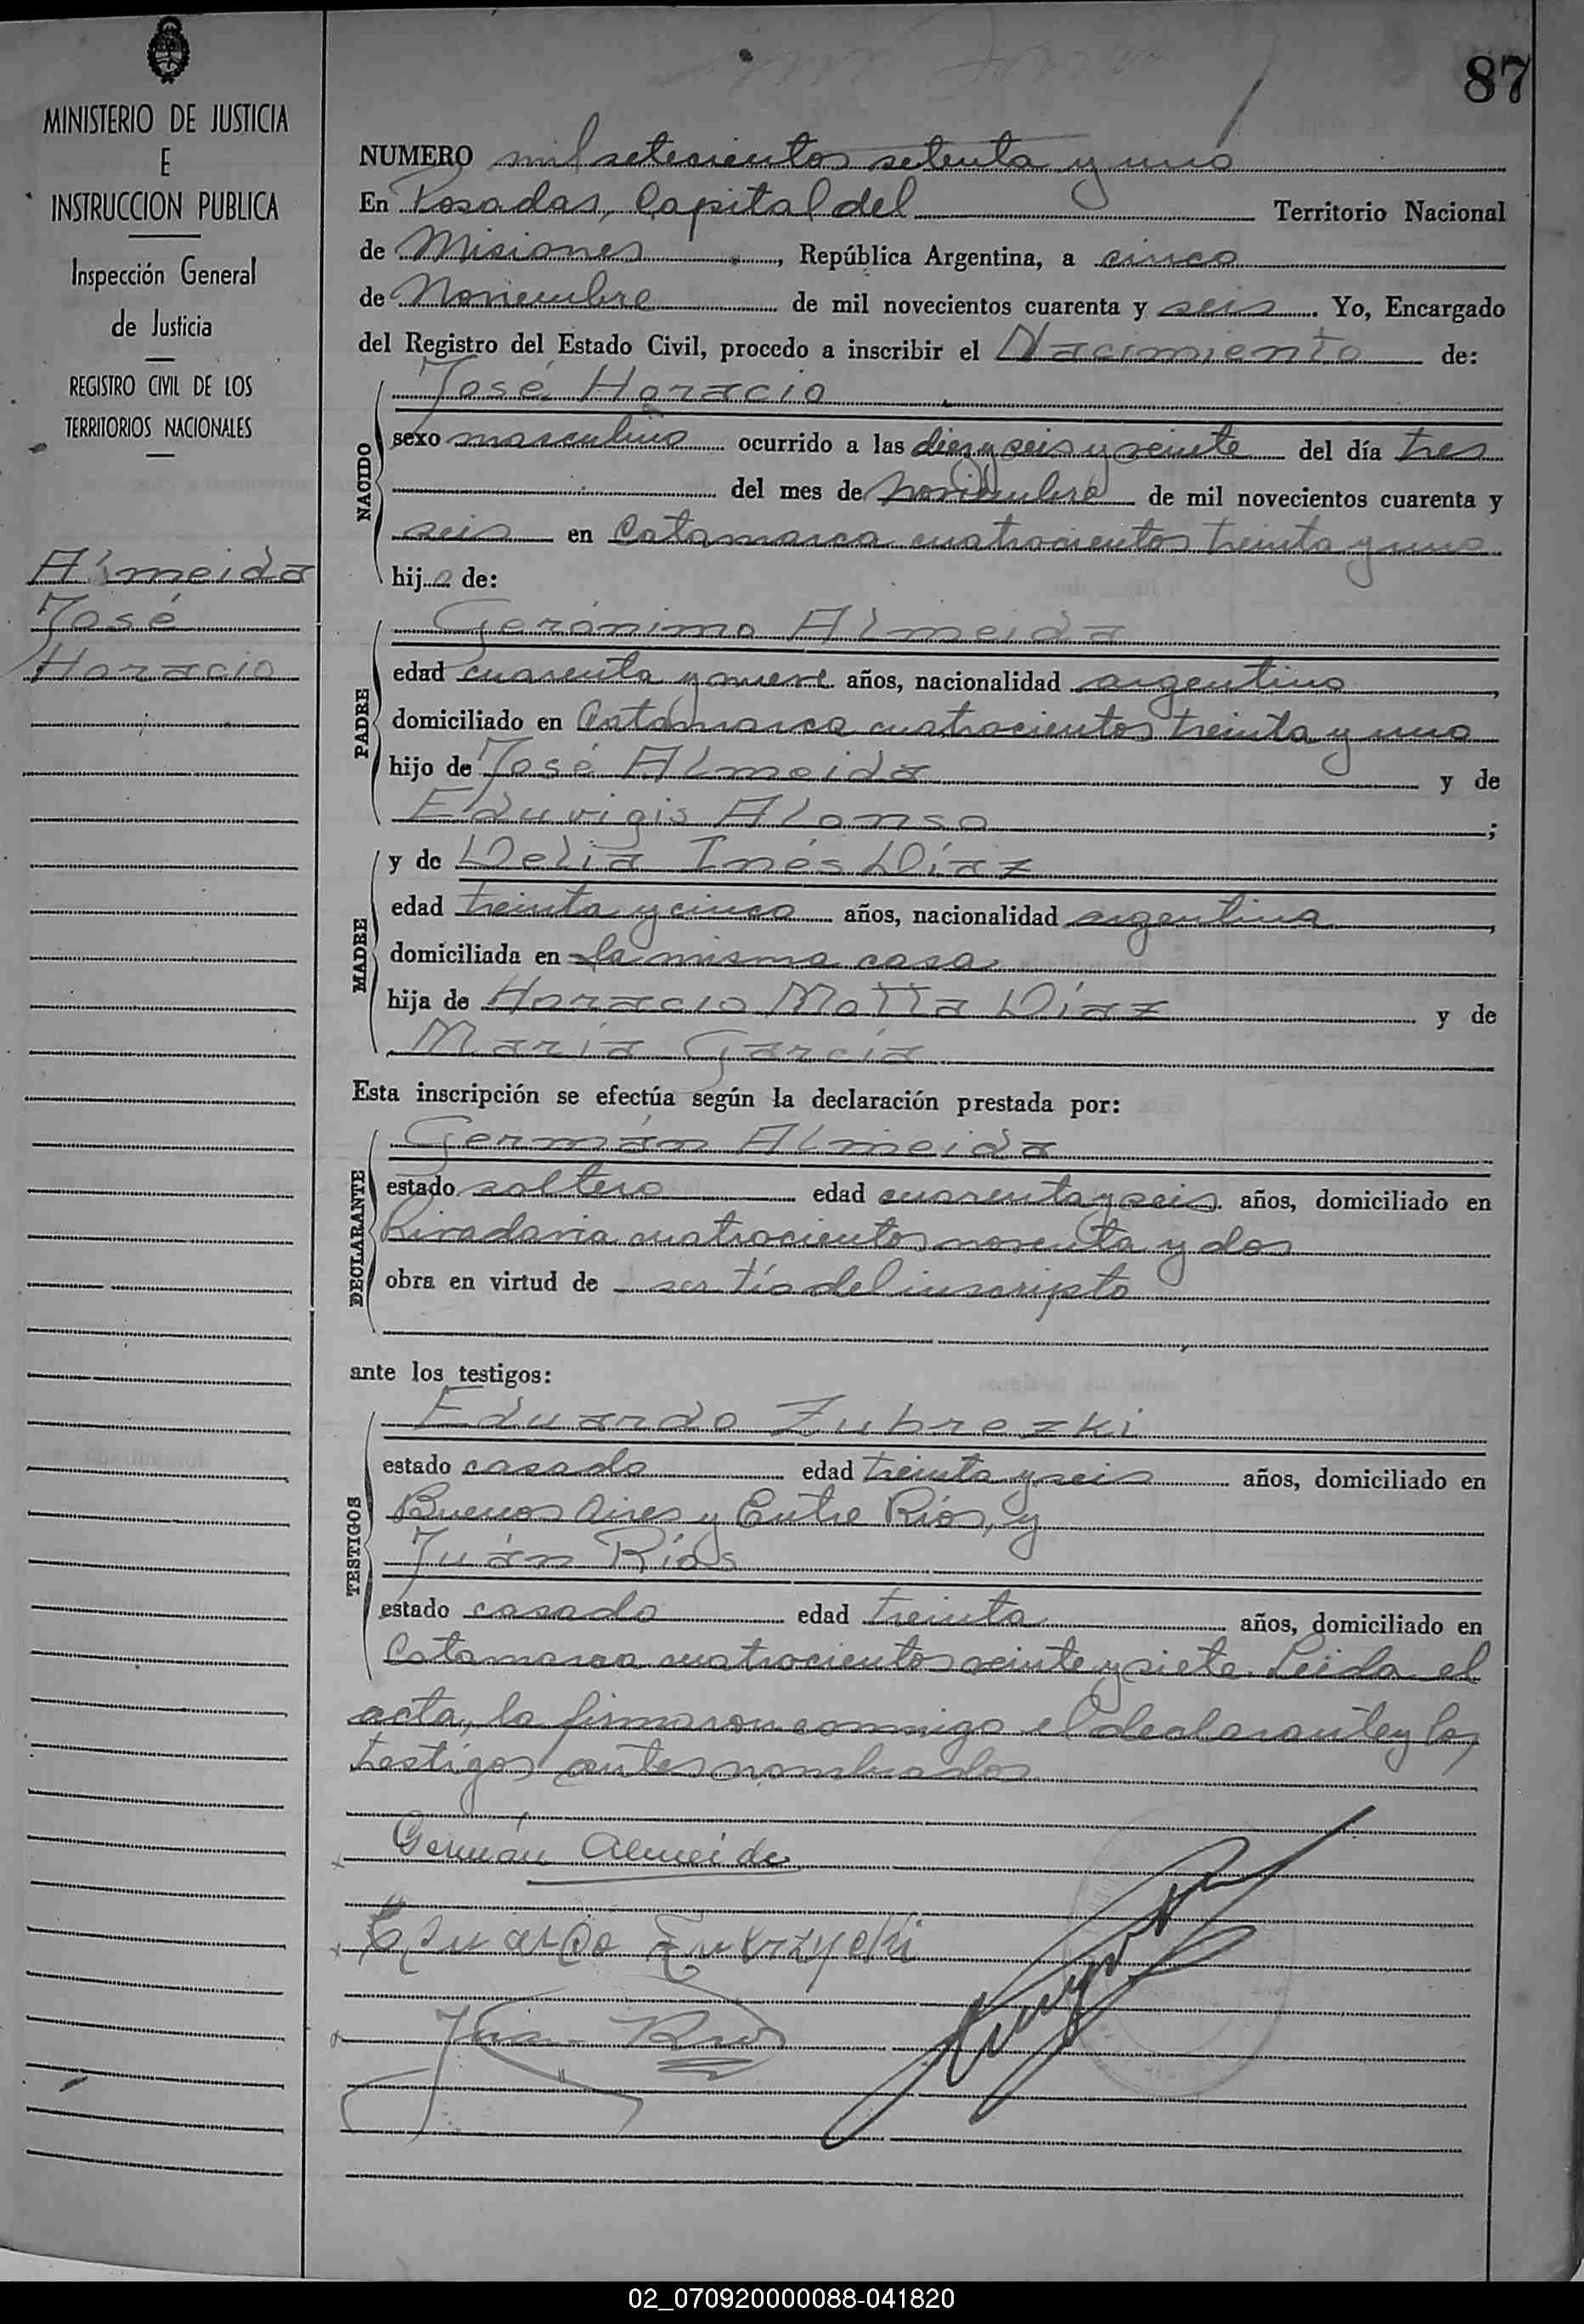 MINISTERIO DE JUSTICIA
E
INSTRUCCION PUBLICA
Inspección General
de Justicia
REGISTRO CIVIL DE LOS
TERRITORIOS NACIONALES
Almeida
José
Horacio
87
NUMERO mil setecientos setenta y uno
En Posadas, Capital del Territorio Nacional
de Misiones, República Argentina, a cinco
de Noviembre de mil novecientos cuarenta y seis. Yo, Encargado
del Registro del Estado Civil, procedo a inscribir el Nacimiento de:
NACIDO
José Horacio
sexo masculino ocurrido a las diez y seis y veinte del día tres
del mes de Noviembre de mil novecientos cuarenta y
seis en Catamarca cuatrocientos treinta y uno
hijo de:
PADRE
Gerónimo Almeida
edad cuarenta y nueve años, nacionalidad argentino,
domiciliado en Catamarca cuatrocientos treinta y uno
hijo de José Almeida y de
Eduvigis Alonso;
MADRE
y de Delia Inés Díaz
edad treinta y cinco años, nacionalidad argentina,
domiciliada en la misma casa
hija de Horacio Motta Díaz y de
María García
Esta inscripción se efectúa según la declaración prestada por:
DECLARANTE
Germán Almeida
estado soltero edad cuarenta y seis años, domiciliado en
Rivadavia cuatrocientos noventa y dos
obra en virtud de ser tío del inscripto
ante los testigos:
TESTIGOS
Eduardo Zubrezki
estado casado edad treinta y seis años, domiciliado en
Buenos Aires y Entre Ríos, y
Juán Ríos
estado casado edad treinta años, domiciliado en
Catamarca cuatrocientos veinte y siete. Leida el
acta, la firmaron conmigo el declarante y los
testigos antes nombrados
Germán Almeida
Eduardo Zubrzycki
Juan Rios
02_070920000088-041820